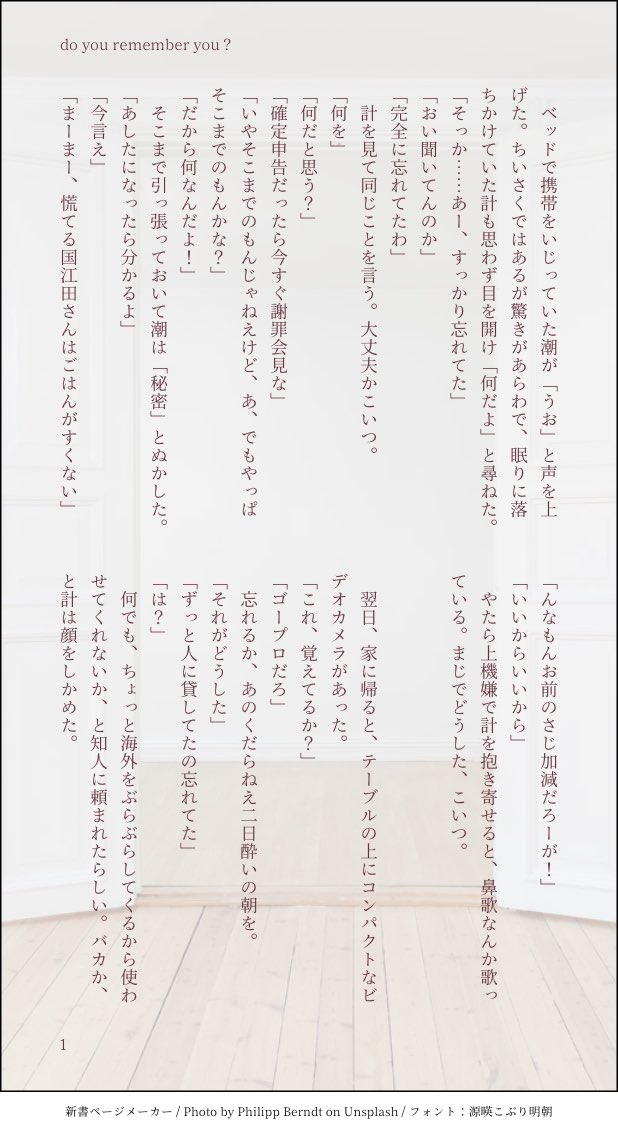 do you remember you？
　ベッドで携帯をいじっていた潮が「うお」と声を上
げた。ちいさくではあるが驚きがあらわで、眠りに落
ちかけていた計も思わず目を開け「何だよ」と尋ねた。
「そっか……あー、すっかり忘れてた」
「おい聞いてんのか」
「完全に忘れてたわ」
　計を見て同じことを言う。大丈夫かこいつ。
「何を」
「何だと思う？」
「確定申告だったら今すぐ謝罪会見な」
「いやそこまでのもんじゃねえけど、あ、でもやっぱ
そこまでのもんかな？」
「だから何なんだよ！」
　そこまで引っ張っておいて潮は「秘密」とぬかした。
「あしたになったら分かるよ」
「今言え」
「まーまー、慌てる国江田さんはごはんがすくない」
「んなもんお前のさじ加減だろーが！」
「いいからいいから」
　やたら上機嫌で計を抱き寄せると、鼻歌なんか歌っ
ている。まじでどうした、こいつ。
　翌日、家に帰ると、テーブルの上にコンパクトなビ
デオカメラがあった。
「これ、覚えてるか？」
「ゴープロだろ」
　忘れるか、あのくだらねえ二日酔いの朝を。
「それがどうした」
「ずっと人に貸してたの忘れてた」
「は？」
　何でも、ちょっと海外をぶらぶらしてくるから使わ
せてくれないか、と知人に頼まれたらしい。バカか、
と計は顔をしかめた。
1
新書ページメーカー / Photo by Philipp Berndt on Unsplash / フォント：源暎こぶり明朝